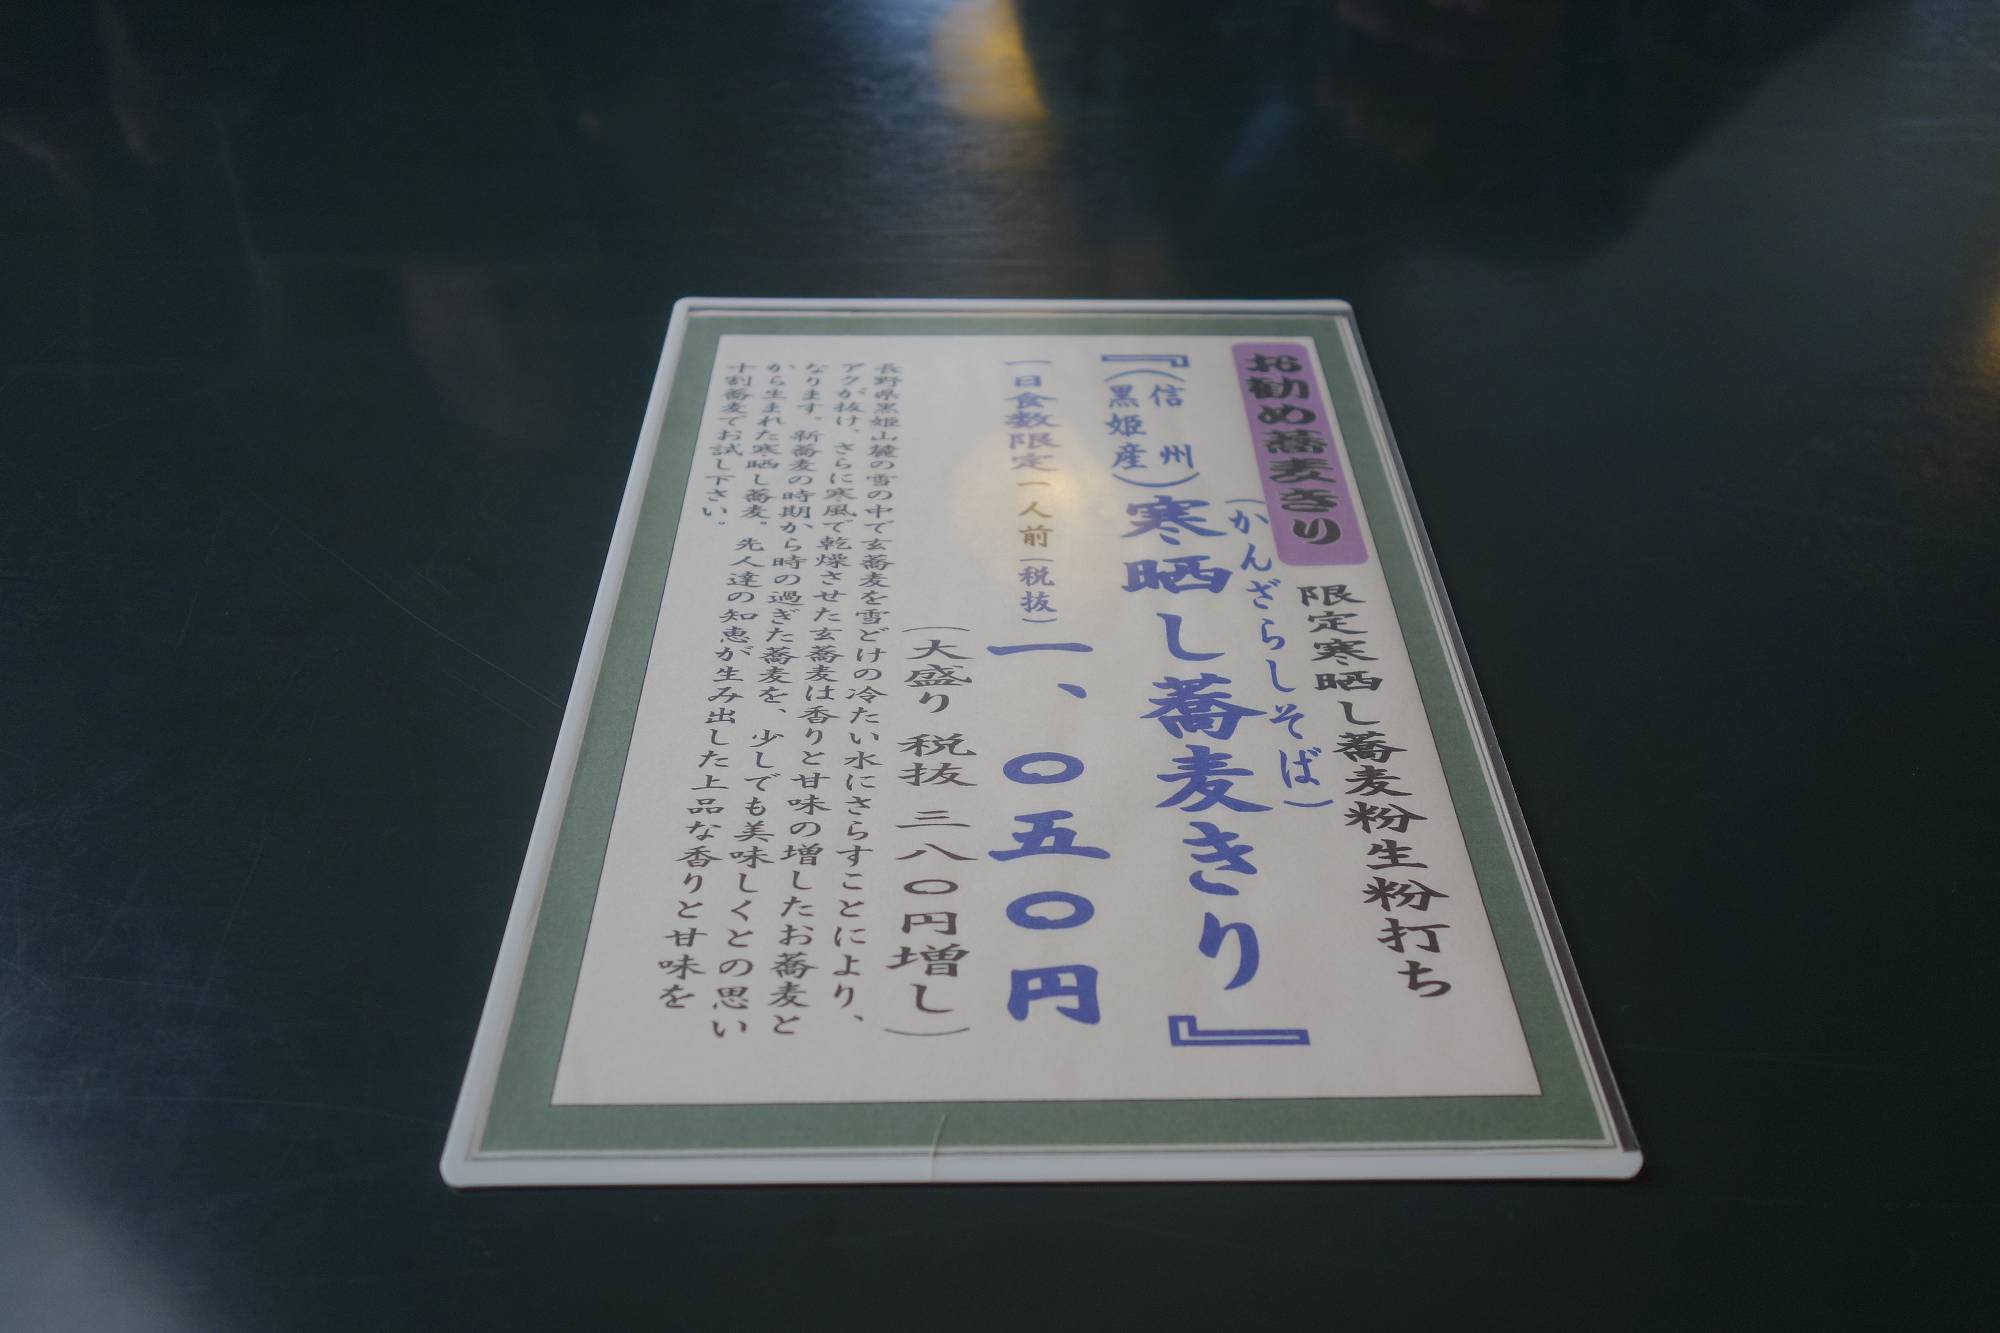 お勧め蕎麦きり
限定寒晒し蕎麦粉生粉打ち
(かんざらしそば)
『(信州黒姫産)寒晒し蕎麦きり』
一日食数限定一人前(税抜)一、〇五〇円
(大盛り 税抜 三八〇円増し)
長野県黒姫山麓の雪の中で玄蕎麦を雪どけの冷たい水にさらすことにより、
アクが抜け、さらに寒風で乾燥させた玄蕎麦は香りと甘味の増したお蕎麦と
なります。新蕎麦の時期から時の過ぎた蕎麦を、少しでも美味しくとの思い
から生まれた寒晒し蕎麦。先人達の知恵が生み出した上品な香りと甘味を
十割蕎麦でお試し下さい。